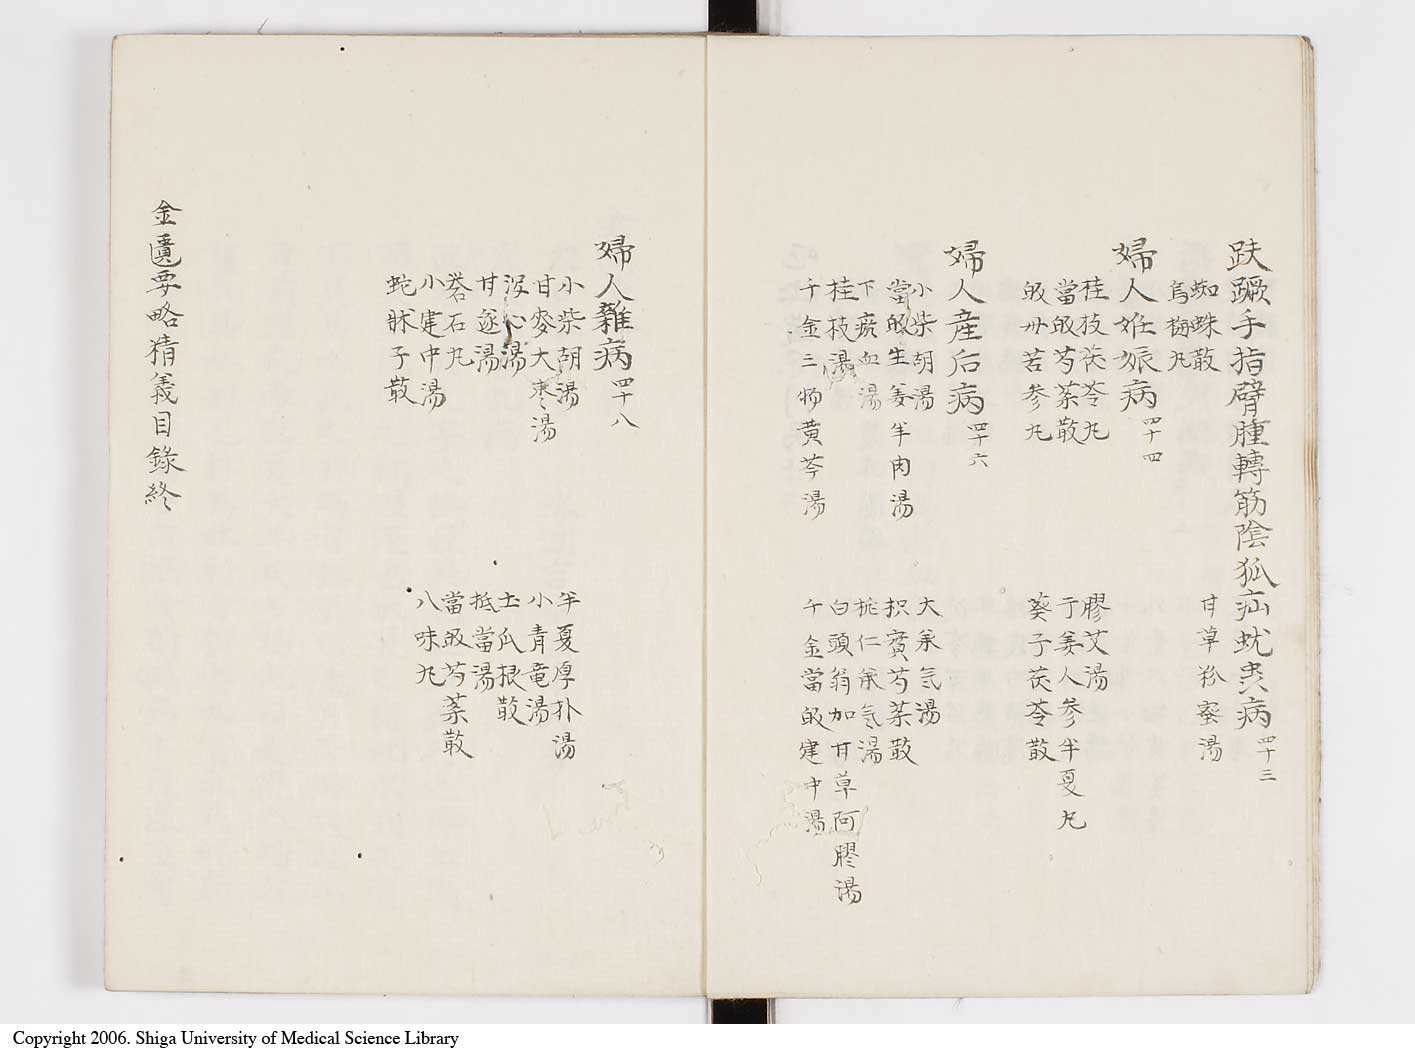 趺蹶手指臂腫轉筋陰狐疝蚘虫病 四十三
蜘蛛散 甘草粉蜜湯
烏梅丸
婦人妊娠病 四十四
桂枝茯苓丸 膠艾湯
當皈芍藥散 干姜人參半夏丸
皈母苦参丸 葵子茯苓散
婦人産后病 四十六
小柴胡湯 大承気湯
當皈生姜羊肉湯 枳實芍薬散
下瘀血湯 桃仁承気湯
桂枝湯 白頭翁加甘草阿膠湯
千金三物黄芩湯 千金當皈建中湯
婦人雜病 四十八
小柴胡湯 半夏厚朴湯
甘麥大棗湯 小青竜湯
瀉心湯 土瓜根散
甘遂湯 抵當湯
礬石丸 當皈芍薬散
小建中湯 八味丸
蛇牀子散
金匱要略精義目錄終
Copyright 2006. Shiga University of Medical Science Library